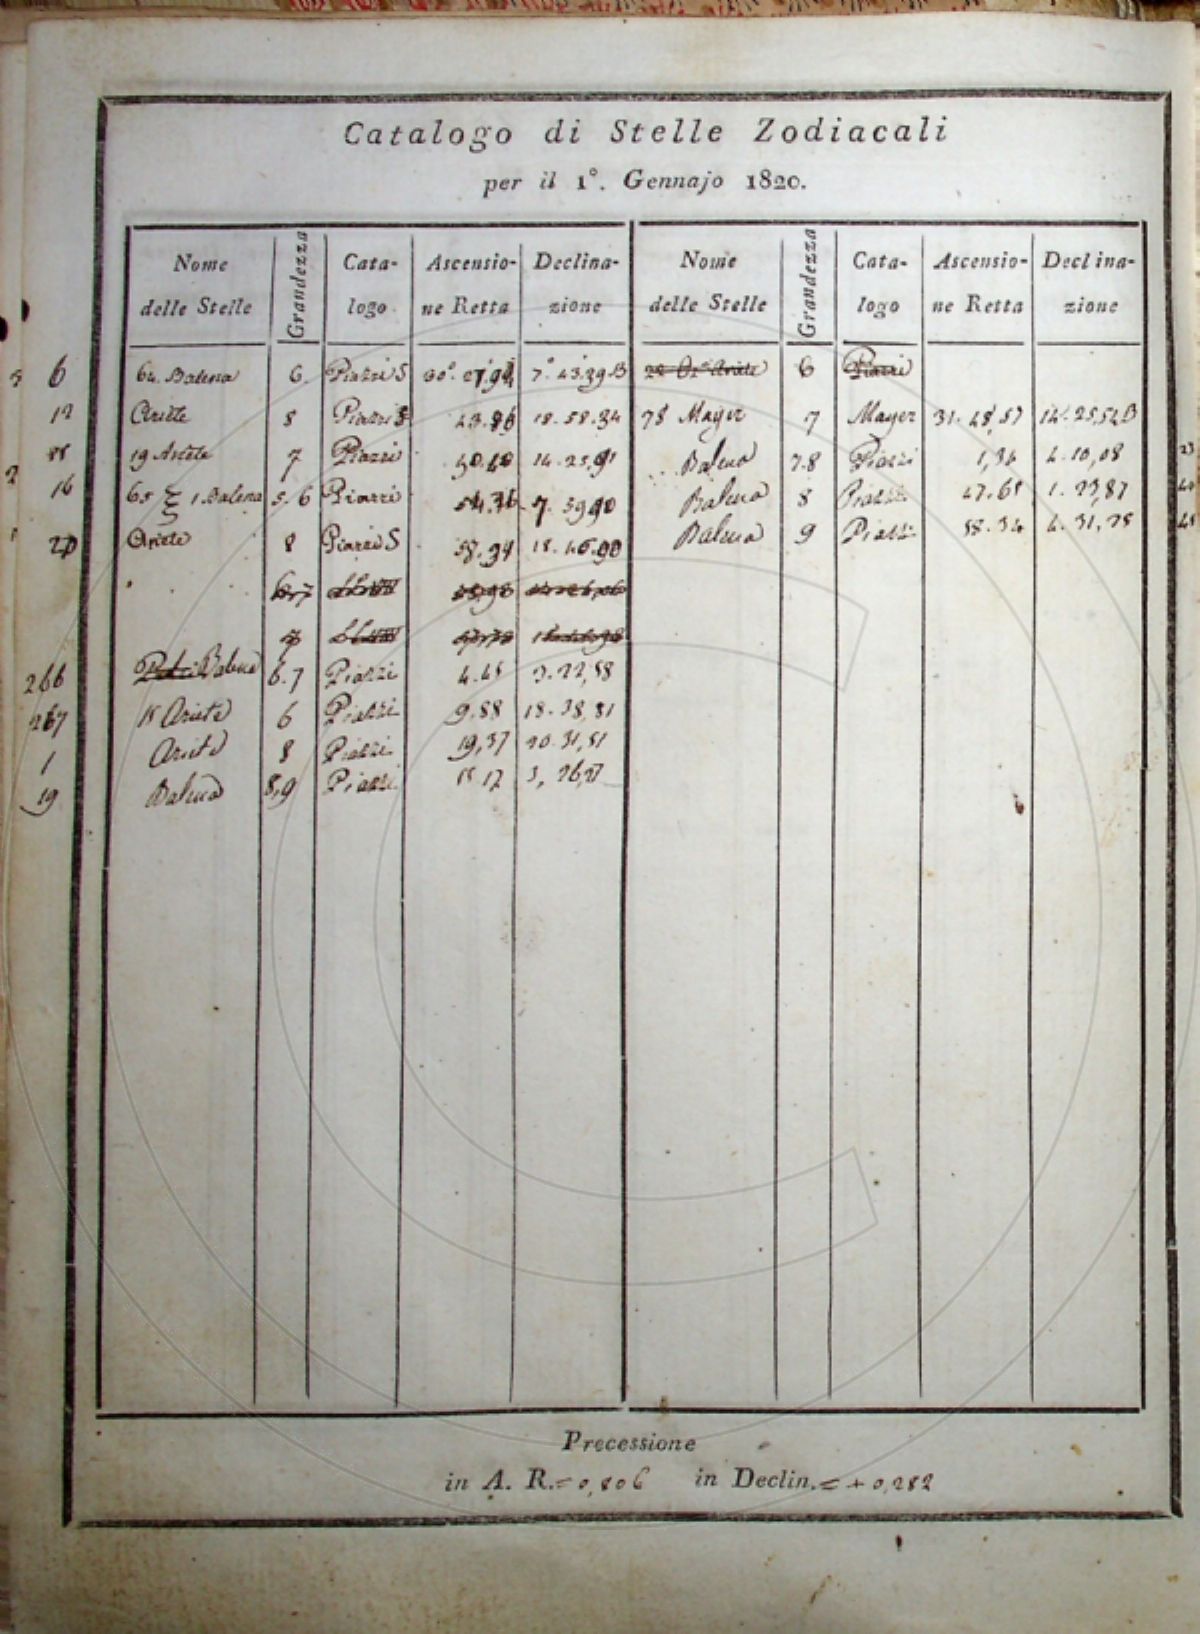 Catalogo di Stelle Zodiacali
per il 1°. Gennajo 1820.
Nome delle Stelle Grandezza Cata-logo Ascensio-ne Retta Declina-zione Nome delle Stelle Grandezza Cata-logo Ascensio-ne Retta Declina-zione
6 64. Balena 6. Piazzi S 30°. 7°. 43.39 B 6 Piazzi
12 Ariete 8 Piazzi S 18.58.34 78 Mayer 7 Mayer 31.48,57 14.25,54 B
19 Ariete 7 Piazzi 14.25,91 Balena 7.8 Piazzi 1,34 4.10,08
16 65 ξ 1. Balena 5.6 Piazzi 7.39,90 Balena 8 Piazzi 47.65 1.23,87
20 Ariete 8 Piazzi S 18.46.90 Balena 9 Piazzi 58.34 4.31,75
6.7
7
266 Balena 6.7 Piazzi 4.45 3.22,58
267 15 Ariete 6 Piazzi 9.88 18.38,81
1 Ariete 8 Piazzi 19,37 20.31,51
19 Balena 8,9 Piazzi 15.17 3,
Precessione
in A. R. = 0,806 in Declin. = + 0,282